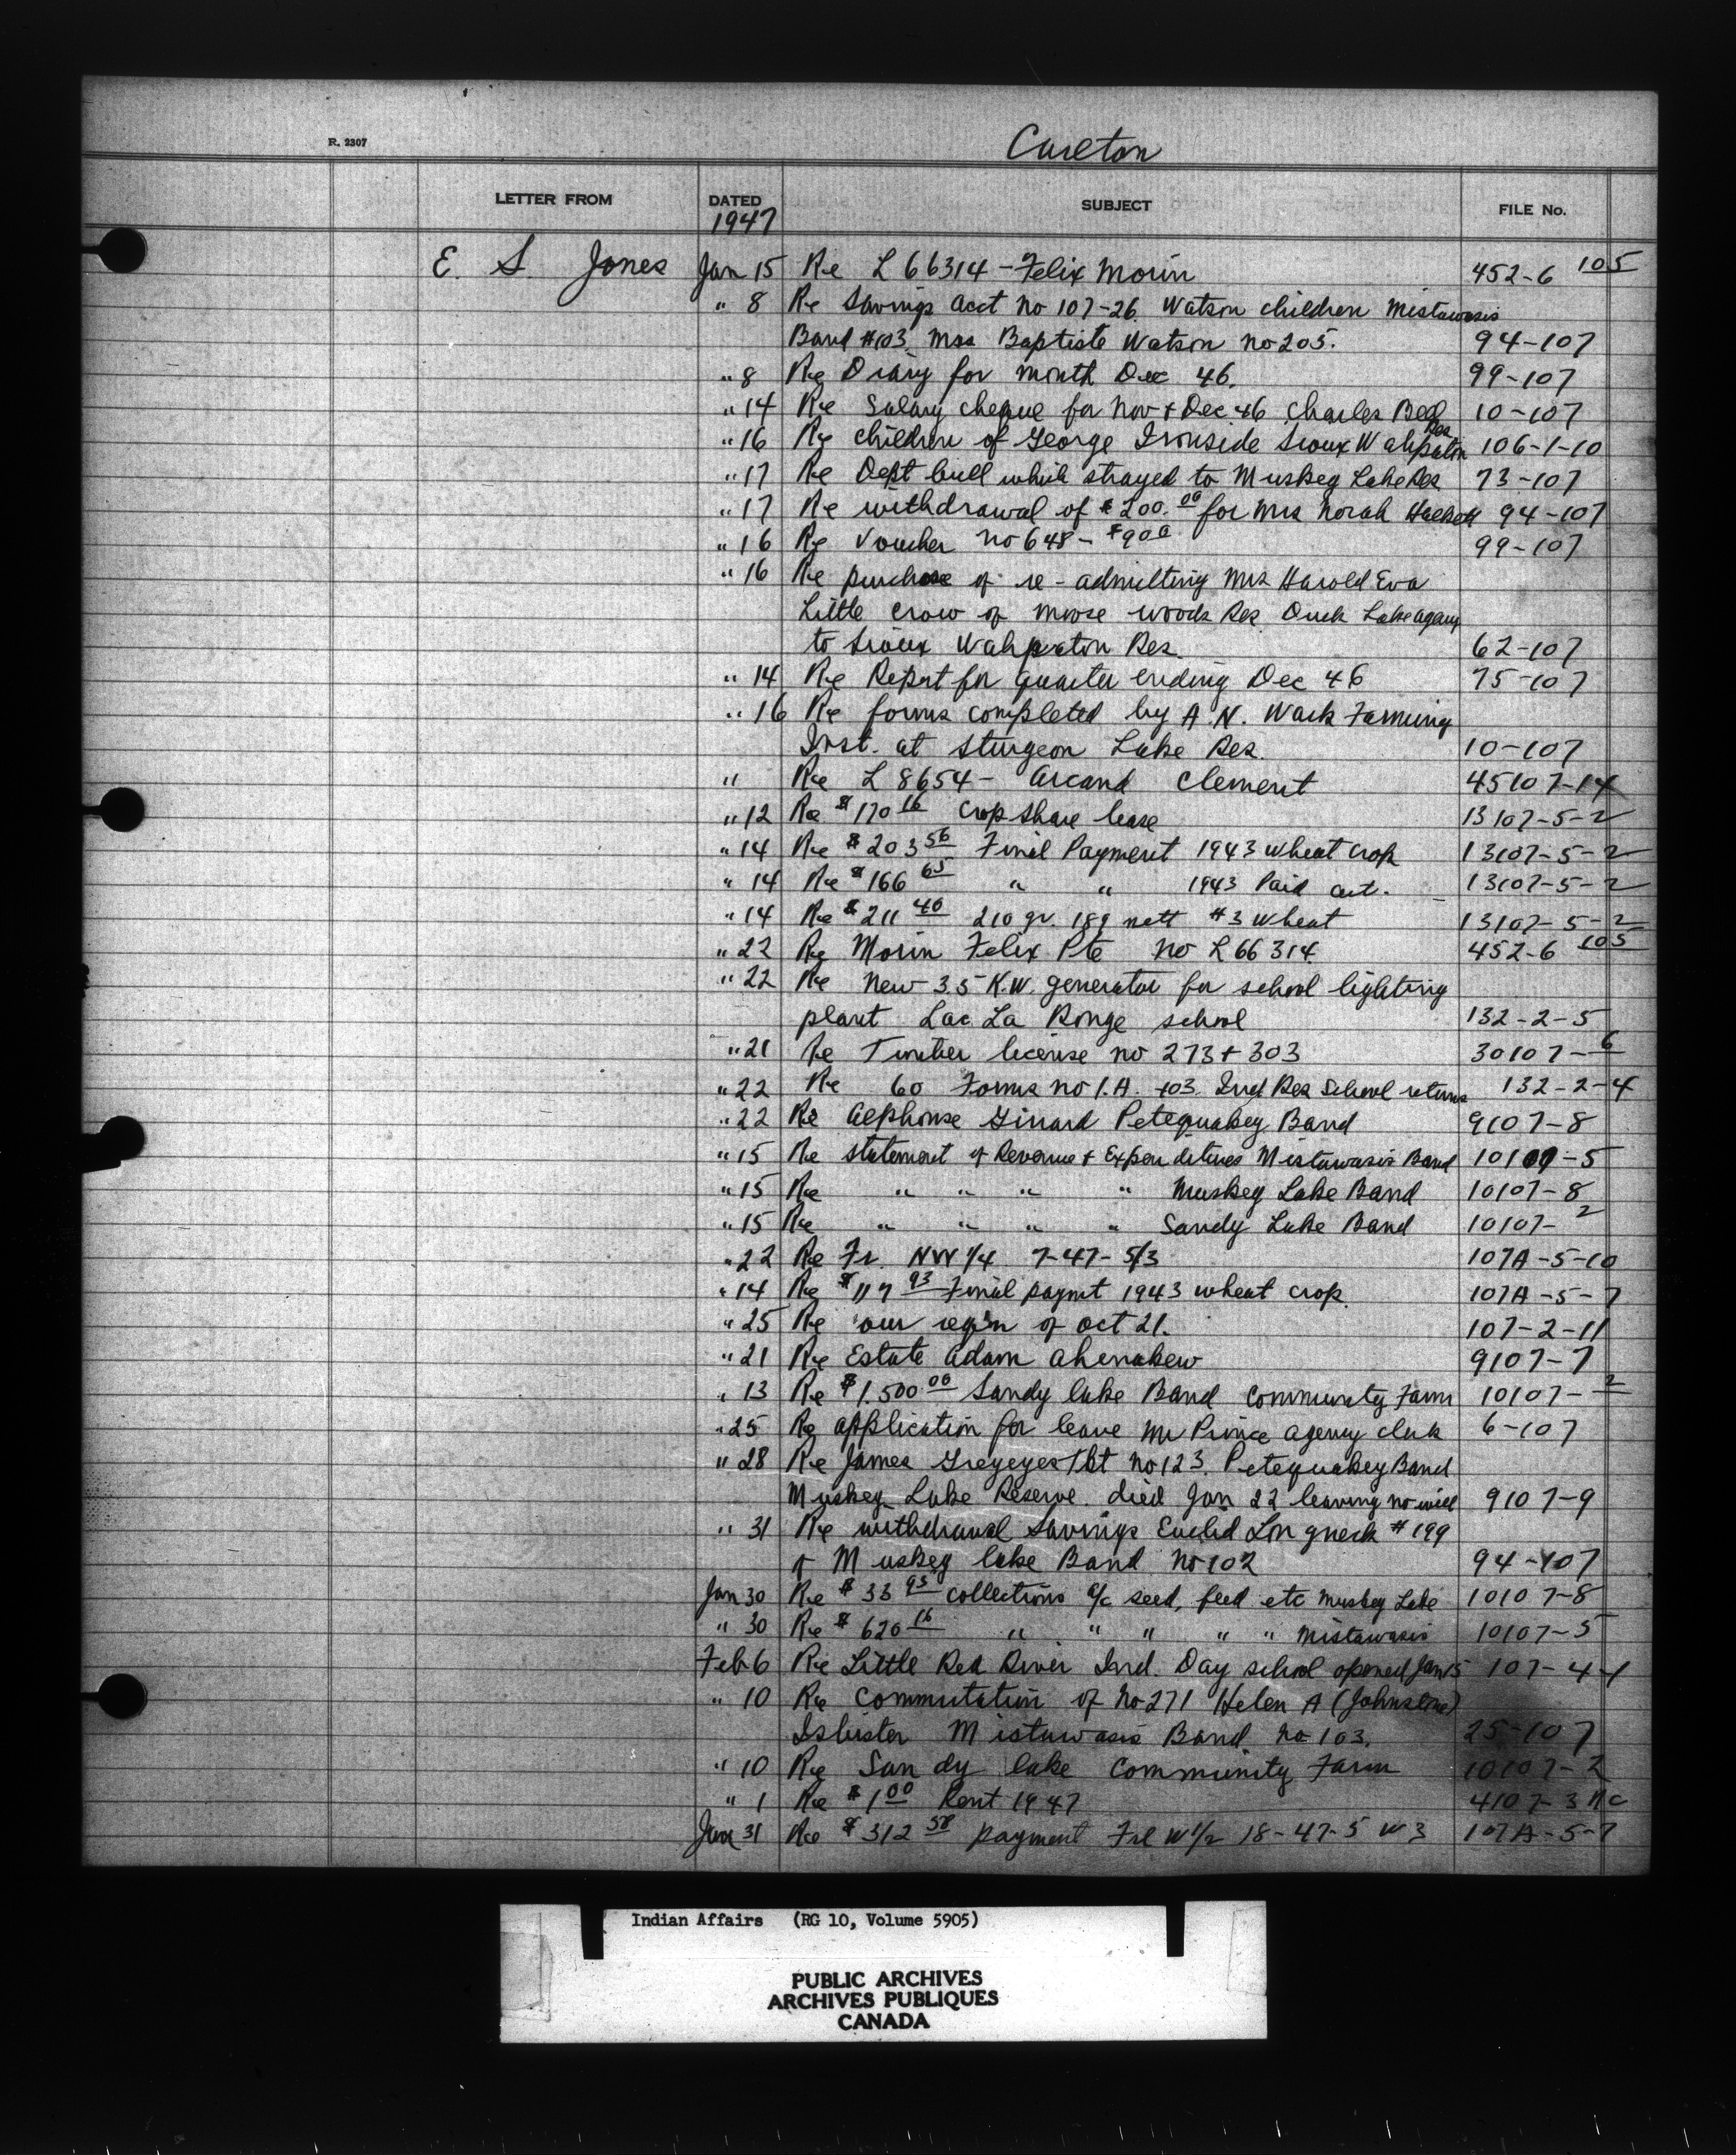 R. 2307
Carlton
LETTER FROM DATED SUBJECT FILE No.
1947
E. S. Jones Jan 15 Re L 66314 - Felix Morin 452-6 105
" 8 Re Savings acct no 107-26. Watson children Mistawasis
Band #103. Mrs Baptiste Watson no 205. 94-107
" 8 Re Diary for month Dec 46. 99-107
" 14 Re Salary cheque for Nov + Dec 46 Charles Bell 10-107
" 16 Re children of George Ironside Sioux Wahpaton Res 106-1-10
" 17 Re Dept bull which strayed to Muskeg Lake Res 73-107
" 17 Re withdrawal of $200.00 for Mrs Norah 94-107
" 16 Re Voucher no 648 - $9 00 99-107
" 16 Re purchase of re-admitting Mrs Harold Eva
Little Crow of Moose Woods Res Duck Lake agency
to Sioux Wahpaton Res. 62-107
" 14 Re Report for quarter ending Dec 46 75-107
" 16 Re forms completed by A. N. Wark Farming
Inst. at Sturgeon Lake Res. 10-107
" Re L 8654 - Arcand Clement 45107-14
" 12 Re $170 16 crop share lease 13107-5-2
" 14 Re $203 56 Final Payment 1943 wheat crop 13107-5-2
" 14 Re $166 65 " " 1943 Paid out. 13107-5-2
" 14 Re $211 40 210 gr. 189 nett #3 wheat 13107-5-2
" 22 Re Morin Felix Pte no L 66314 452-6 105
" 22 Re New 3.5 K.W. generator for school lighting
plant Lac La Ronge school 132-2-5
" 21 Re Timber license no 273 + 303 30107-6
" 22 Re 60 Forms no I.A. 403. Ind Res School returns 132-2-4
" 22 Re Alphonse Girard Petequakey Band 9107-8
" 15 Re statement of Revenue + Expenditures Mistawasis Band 10107-5
" 15 Re " " " " Muskeg Lake Band 10107-8
" 15 Re " " " " Sandy Lake Band 10107-2
" 22 Re Fr. NW 1/4 7-47-5/3 107A-5-10
" 14 Re $117 93 Final paymt 1943 wheat crop. 107A-5-7
" 25 Re our of Oct 21. 107-2-11
" 21 Re Estate Adam Ahenakew 9107-7
" 13 Re $1.500 00 Sandy Lake Band Community Farm 10107-2
" 25 Re application for leave Mr Prince agency clerk 6-107
" 28 Re James Greyeyes Tkt no 123. Petequakey Band
Muskeg Lake Reserve. died Jan 22 leaving no will 9107-9
" 31 Re withdrawal Savings Euclid Longneck #199
of Muskeg Lake Band no 102 94-107
Jan 30 Re $33 93 collections a/c seed, feed etc Muskeg Lake 10107-8
" 30 Re $620 16 " " " " " Mistawasis 10107-5
Feb 6 Re Little Red River Ind. Day school opened Jan 15 107-4-1
" 10 Re Commutation of No 271 Helen A (Johnstone)
Isbister Mistawasis Band no 103. 25-107
" 10 Re Sandy Lake Community Farm 10107-2
" 1 Re $1 00 Rent 1947 4107-3
Jan 31 Re $312 58 payment Frl W 1/2 18-47-5 W 3 107A-5-7
Indian Affairs (RG 10, Volume 5905)
PUBLIC ARCHIVES
ARCHIVES PUBLIQUES
CANADA